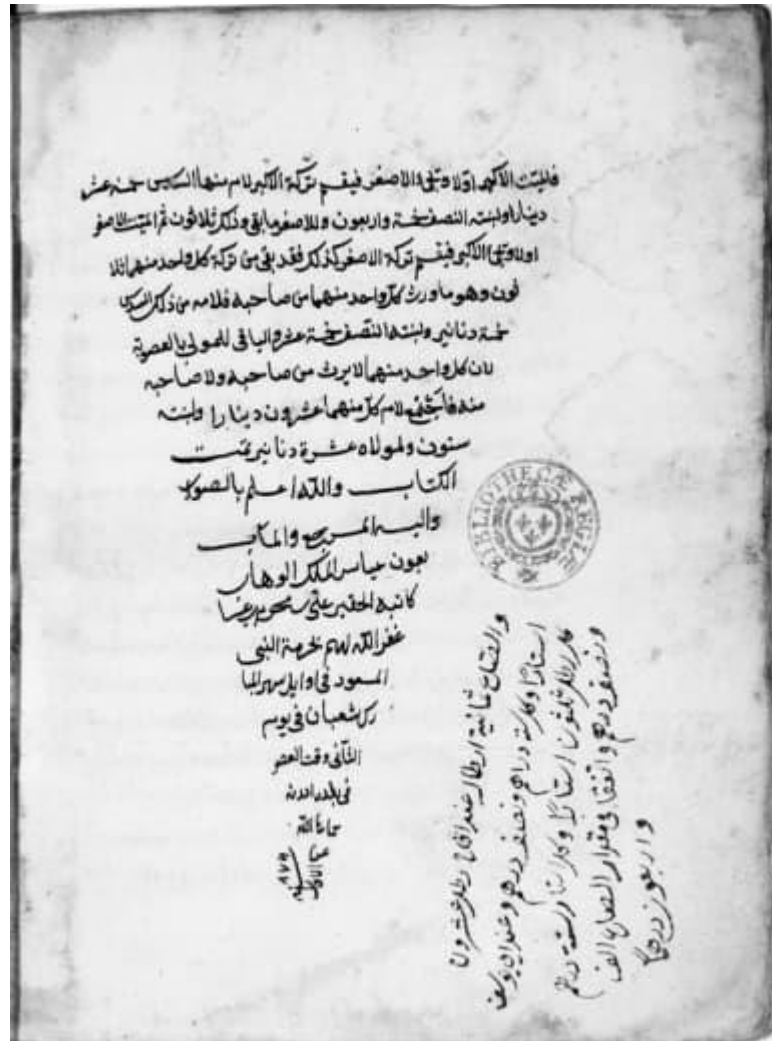 فلميت الاكبر اولا وتبقى الاصغر فيقسم تركة الاكبر لام منها السدس خمسة عشر
دينارا ولبنته النصف خمسة واربعون وللاصغر ما بقى وذلك ثلاثون ثم اميت الاصغر
اولا وتبقى الاكبر فيقسم تركة الاصغر كذلك فقد بقى من تركة كل واحد منهما ثلا
ثون وهو ما ورث كل واحد منهما من صاحبه فلامه من ذلك السدس
خمسة دنانير ولبنته النصف خمسة عشر والباقى للمولى بالعصوبة
لان كل واحد منهما لا يرث من صاحبه ولا صاحبه
منه فاجتمع لام كل منهما عشرون دينارا ولبنته
ستون ولمولاه عشرة دنانير تمت
الكتاب والله اعلم بالصواب
واليه المرجع والماب
بعون الملك الوهاب
كاتبه الحقير على بن
غفر الله لهم بحرمة النبى
المسعود فى اوايل شهر المبا
رك شعبان فى يوم
الثانى وقت العصر
فى بلدة ادرنه
حماها الله
عن
سنة ٨٧٩
BIBLIOTHECÆ REGIÆ
والصاع ثمانية ارطال عندابى ح رطل عشرون
استارا وكل ستة دراهم ونصف درهم وعند ابى يوسف
كل رطل ثلثون استارا وكل استار ستة درهم
ونصف درهم واتفقا فى مقدار الصاع الف
واربعون درهما